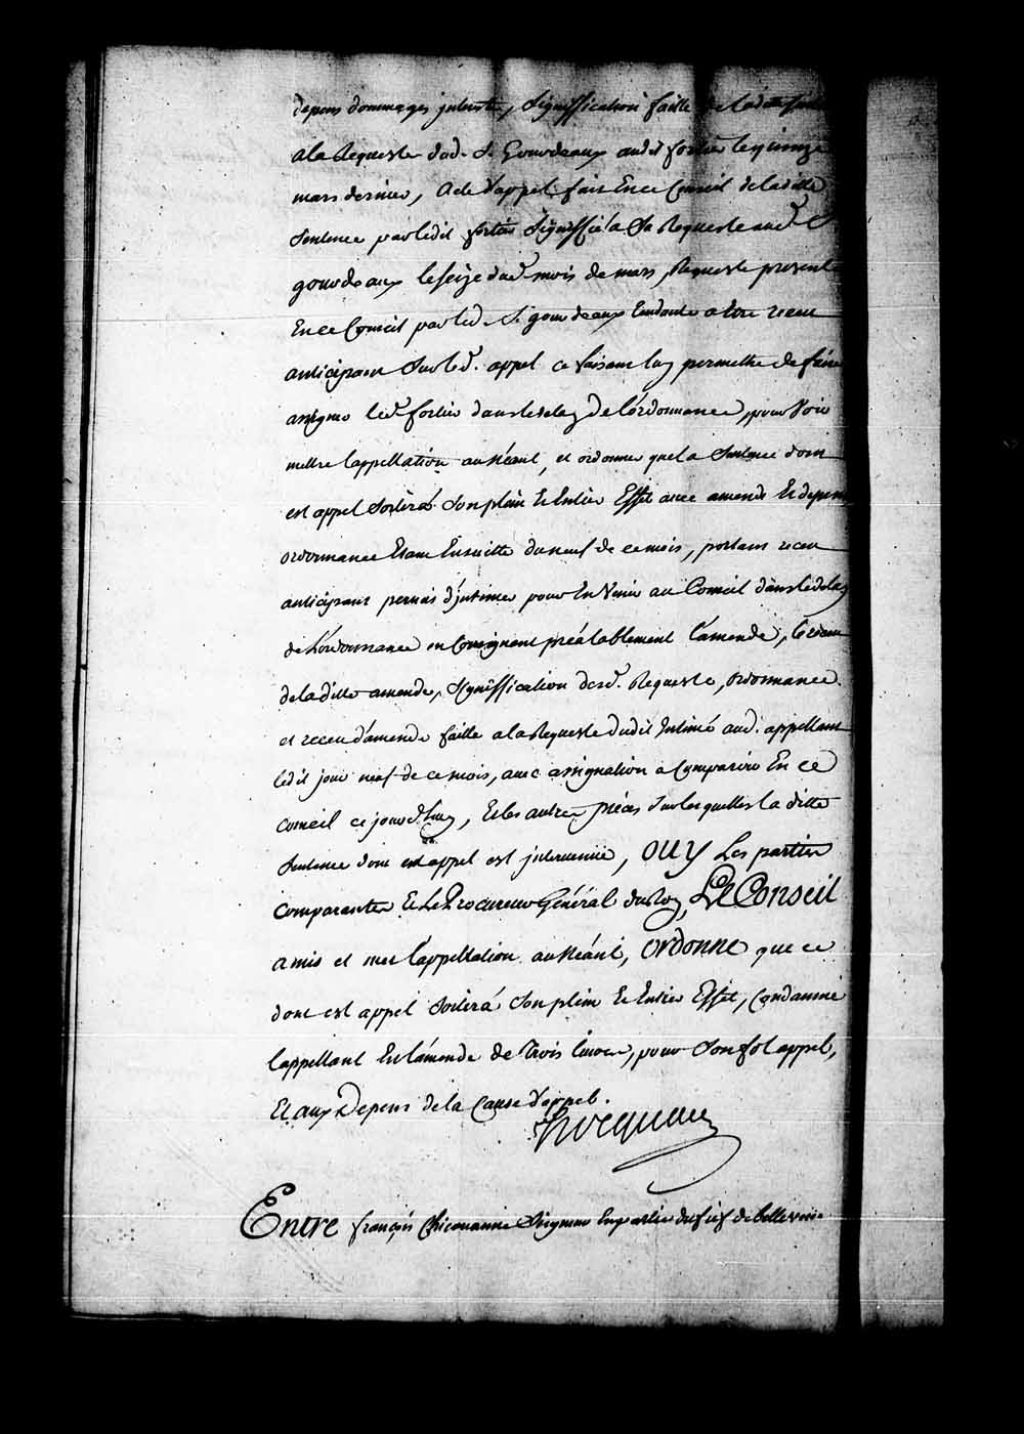 depens dommages interests, Signiffication faitte de la de
a la Requeste dud. S. Gourdeaux aud. fortier le quinze
mars dernier, Acte d'appel fait En ce Conseil de la ditte
Sentence par ledit fortier Signiffié a Sa Requeste aud. S
gourdeaux le seize dud. mois de mars, Requeste present
En ce Conseil par led. S. gourdeaux tendante a Etre receu
anticipant Sur led. appel ce faisant luy permettre de faire
assigner led. fortier dans les delay De l'ordonnance, pour Voir
mettre l'appellation au Néant, et ordonner que la Sentence dont
est appel Sortira Son plein Et Entier Effet avec amende Et depens
ordonnance Etant Ensuitte du neuf de ce mois, portant receu
anticipant permis d'jntimer pour En Venir au Conseil dans le delay
de L'ordonnance en Consignant préalablement L'amende, le receu
de la ditte amende, Signiffication desd. Requeste, ordonnance
et receu d'amende faitte a la Requeste dudit Intimé aud. appellant
ledit jour neuf de ce mois, avec assignation a Comparoir En ce
Conseil ce jourd'huy, Et les autres pièces Sur lesquelles la ditte
Sentence dont est appel est jntervenüe, OUY Les parties
comparantes Et Le Procureur Général du Roy, Le Conseil
a mis et met l'appellation au Néant, ordonne que ce
dont est appel Sortira Son plein Et Entier Effet, Condamne
l'appellant En l'amende de trois livres, pour Son fol appel,
Et aux Depens de la Cause d'appel.
Hocquart
Entre françois Chicouanne Seigneur En partie du fief de bellevüe